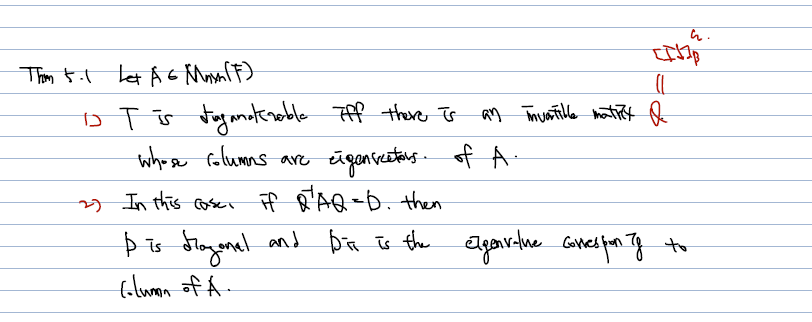 Thm 5.1 Let A ∈ Mnxn(F)
[I]β
||
1) T is diagonalizable iff there is an invertible matrix Q
whose columns are eigenvectors. of A.
2) In this case, if Q⁻¹AQ = D. then
D is diagonal and Dii is the eigenvalue to
column of A.